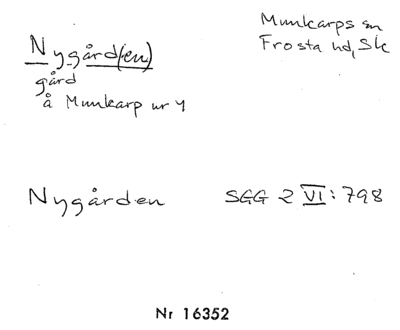 Nygård(en)
gård
å Munkarp nr 4
Munkarps sn
Frosta hd, Sk
Nygården SGG 2 VI: 798
Nr 16352